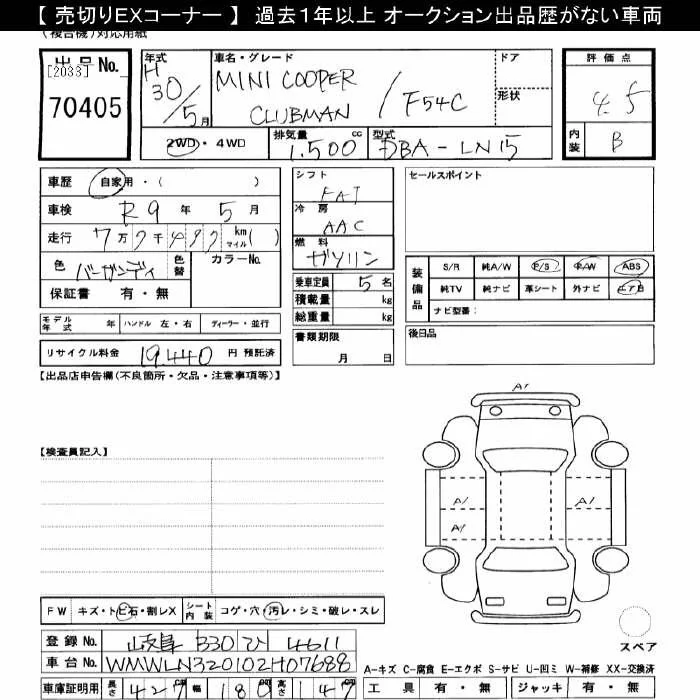 【 売切りEXコーナー 】 過去1年以上 オークション出品歴がない車両
(複合機)対応用紙
出品No.
[2033]
70405
年式
H
30/5月
車名・グレード
MINI COOPER
CLUBMAN / F54C
ドア
形状
評価点
4.5
内装 B
2WD・4WD
排気量 1,500 cc
型式 DBA-LN15
車歴 自家用・( )
車検 R9 年 5 月
走行 7万 千 km マイル( )
色 バーガンディ
色替
カラーNo.
保証書 有・無
シフト FAT
冷房 AAC
燃料 ガソリン
乗車定員 5 名
積載量 kg
総重量 kg
セールスポイント
装備品
S/R 純A/W P/S P/W ABS
純TV 純ナビ 革シート 外ナビ エアB
ナビ型番:
モデル年式 年 ハンドル 左・右 ディーラー・並行
リサイクル料金 19,440 円 預託済
書類期限
月 日
後日品
【出品店申告欄(不良箇所・欠品・注意事項等)】
【検査員記入】
A1
A1
A1
A1
FW キズ・トビ石・割レX シート内装 コゲ・穴・汚レ・シミ・破レ・スレ
スペア
登録No. 岐阜 330 ひ 4611
車台No. WMWLN320102H07688
A-キズ C-腐食 E-エクボ S-サビ U-凹ミ W-補修 XX-交換済
車庫証明用 長さ 427 cm 幅 180 cm 高さ 147 cm
工具 有・無 ジャッキ 有・無